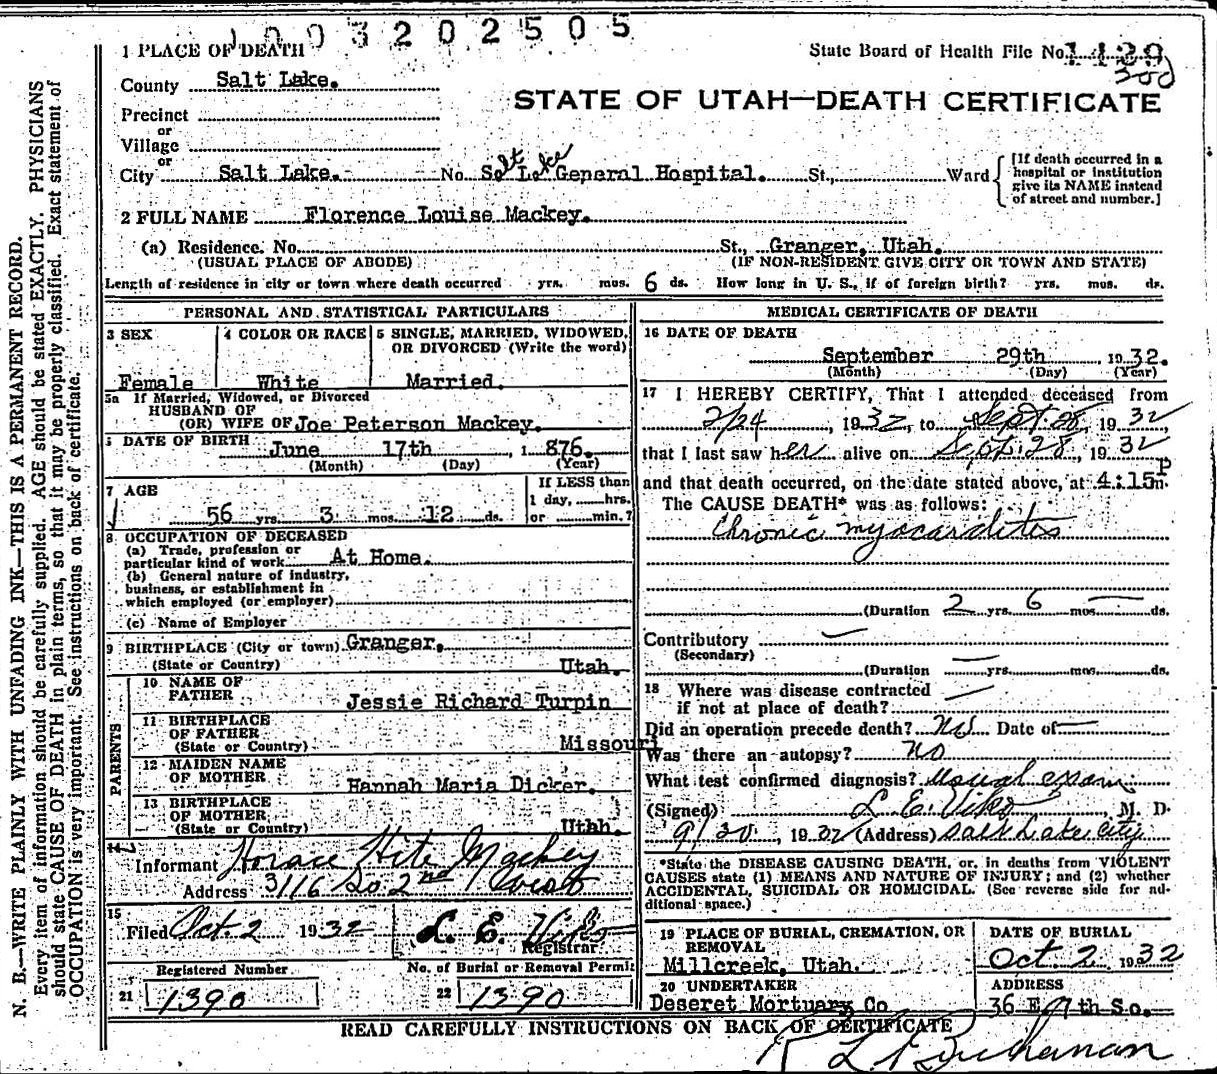 1003202505
1 PLACE OF DEATH
State Board of Health File No. 1429
300
County Salt Lake.
STATE OF UTAH—DEATH CERTIFICATE
Precinct
or
Village
or
City Salt Lake. No. Salt Lake General Hospital. St., Ward
[If death occurred in a
hospital or institution
give its NAME instead
of street and number.]
2 FULL NAME Florence Louise Mackey.
(a) Residence. No. St., Granger, Utah.
(USUAL PLACE OF ABODE) (IF NON-RESIDENT GIVE CITY OR TOWN AND STATE)
Length of residence in city or town where death occurred yrs. mos. 6 ds. How long in U. S., if of foreign birth? yrs. mos. ds.
PERSONAL AND STATISTICAL PARTICULARS
3 SEX
Female
4 COLOR OR RACE
White
5 SINGLE, MARRIED, WIDOWED,
OR DIVORCED (Write the word)
Married.
5a If Married, Widowed, or Divorced
HUSBAND OF
(OR) WIFE OF Joe Peterson Mackey.
6 DATE OF BIRTH June 17th, 1876.
(Month) (Day) (Year)
7 AGE
56 yrs. 3 mos. 12 ds.
If LESS than
1 day, hrs.
or min.?
8 OCCUPATION OF DECEASED
(a) Trade, profession or
particular kind of work At Home.
(b) General nature of industry,
business, or establishment in
which employed (or employer)
(c) Name of Employer
9 BIRTHPLACE (City or town) Granger.
(State or Country) Utah.
PARENTS
10 NAME OF
FATHER Jessie Richard Turpin
11 BIRTHPLACE
OF FATHER
(State or Country) Missouri
12 MAIDEN NAME
OF MOTHER Hannah Maria Dicker.
13 BIRTHPLACE
OF MOTHER
(State or Country) Utah.
14
Informant Horace Hite Mackey
Address 3116 So 2nd West
15
Filed Oct. 2 1932 L. E. Viko
Registrar
Registered Number
21 1390
No. of Burial or Removal Permit
22 1390
MEDICAL CERTIFICATE OF DEATH
16 DATE OF DEATH
September 29th 1932.
(Month) (Day) (Year)
17 I HEREBY CERTIFY, That I attended deceased from
2/24, 1932, to Sept. 28, 1932
that I last saw her alive on Sept. 28, 1932
and that death occurred, on the date stated above, at 4:15 P m.
The CAUSE DEATH* was as follows:
Chronic myocarditis
(Duration 2 yrs. 6 mos. — ds.
Contributory —
(Secondary)
(Duration — yrs. mos. ds.
18 Where was disease contracted
if not at place of death? —
Did an operation precede death? No Date of —
Was there an autopsy? no
What test confirmed diagnosis? usual exam.
(Signed) L. E. Viko, M. D.
9/30, 1932 (Address) Salt Lake City
*State the DISEASE CAUSING DEATH, or, in deaths from VIOLENT
CAUSES state (1) MEANS AND NATURE OF INJURY; and (2) whether
ACCIDENTAL, SUICIDAL OR HOMICIDAL. (See reverse side for ad-
ditional space.)
19 PLACE OF BURIAL, CREMATION, OR
REMOVAL
Millcreek, Utah.
DATE OF BURIAL
Oct 2 1932
20 UNDERTAKER
Deseret Mortuary Co
ADDRESS
36 E 7th So.
READ CAREFULLY INSTRUCTIONS ON BACK OF CERTIFICATE
Buchanan
N. B.—WRITE PLAINLY WITH UNFADING INK—THIS IS A PERMANENT RECORD.
Every item of information should be carefully supplied. AGE should be stated EXACTLY. PHYSICIANS
should state CAUSE OF DEATH in plain terms, so that it may be properly classified. Exact statement of
OCCUPATION is very important. See instructions on back of certificate.